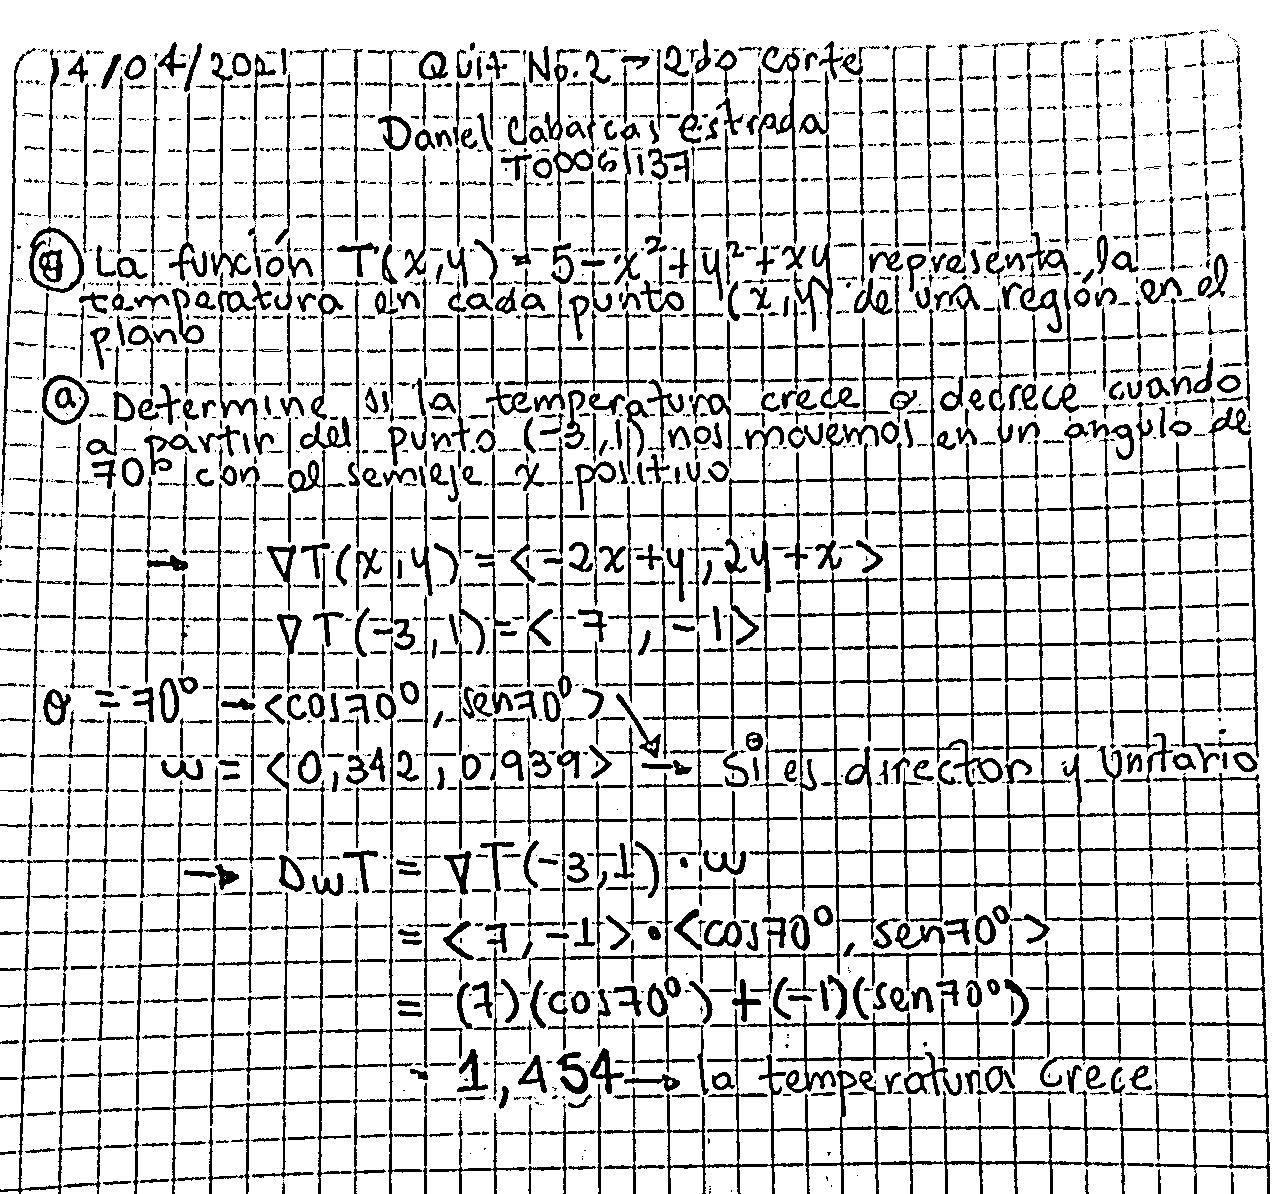 14/04/2021 Quit No.2 → 2do corte
Daniel Cabarcas estrada
T00061137
La función T(x,y) = 5-x²+y²+xy representa la
temperatura en cada punto (x,y) de una región en el
plano
ⓐ Determine si la temperatura crece o decrece cuando
a partir del punto (-3,1) nos movemos en un angulo de
70° con el semieje x positivo
→ ∇T(x,y) = <-2x+y, 2y+x>
∇T(-3,1) = < 7 , -1>
θ = 70° → <cos70°, sen70°>
w = <0,342, 0.939> → Si es director y Unitario
→ DwT = ∇T(-3,1) · w
= <7,-1> · <cos70°, sen70°>
= (7)(cos70°) + (-1)(sen70°)
= 1,454 → la temperatura crece